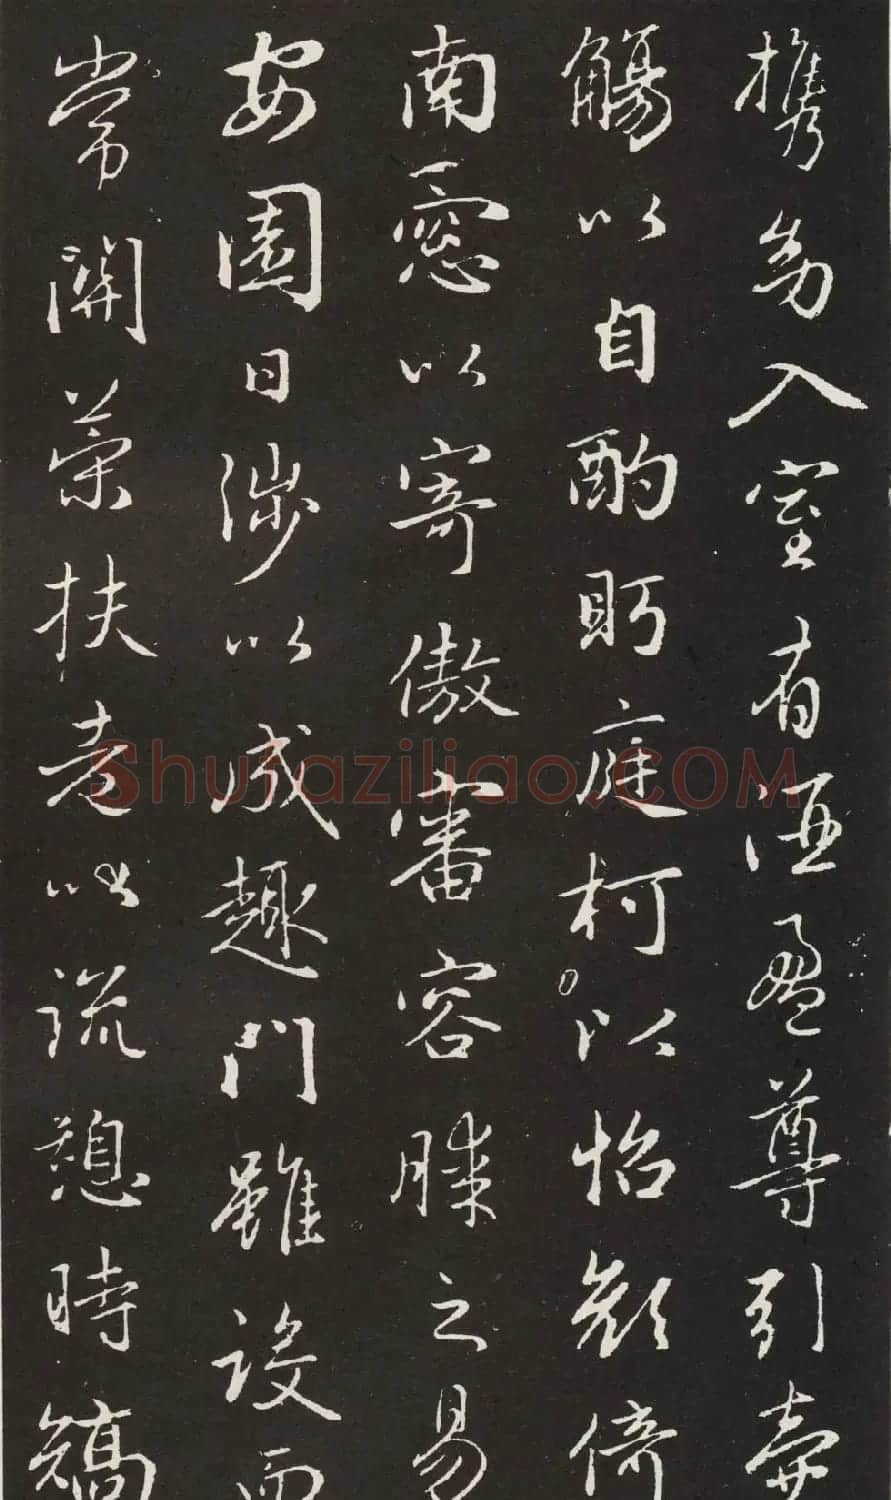 携幼入室有酒盈尊引壺
觴以自酌眄庭柯以怡顔倚
南窻以寄傲審容膝之易
安園日涉以成趣門雖設而
常關策扶老以流憩時矯
Shufaziliao.COM